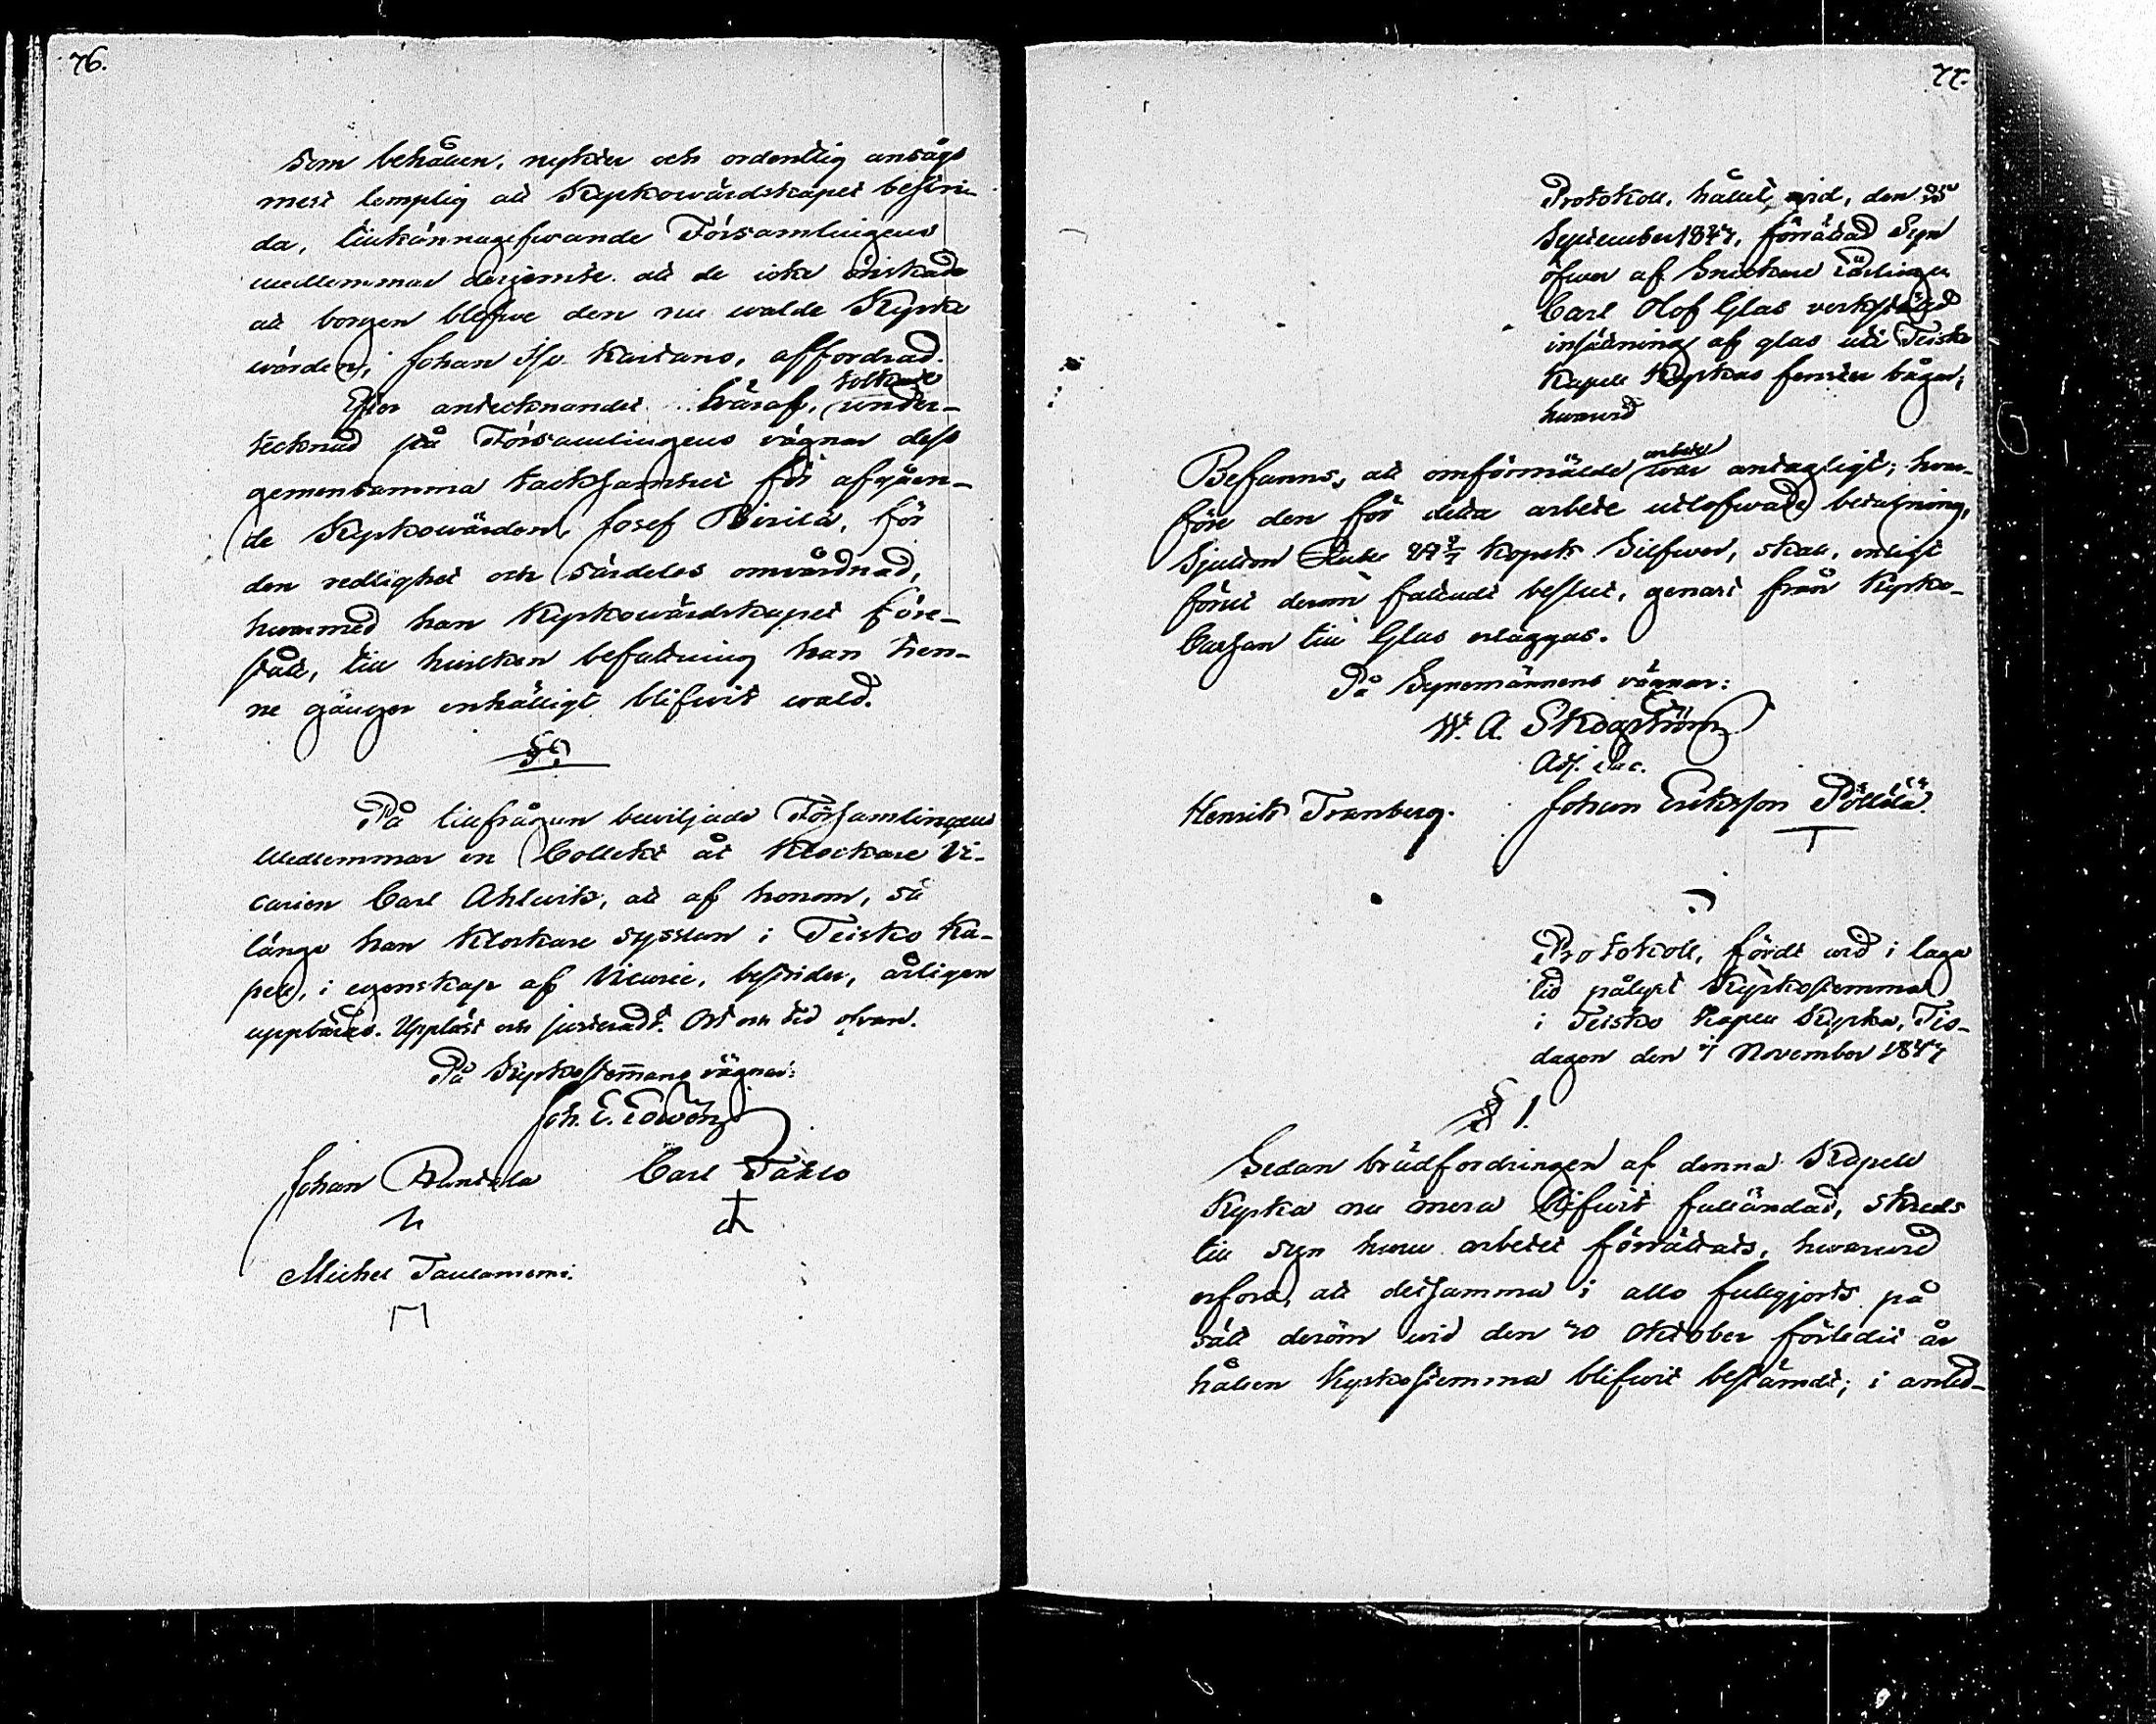 76.
som behållen, nykter och ordentlig ansågs
mest lemplig att Kyrkowärdskapet bestri-
da, tillkännagifwande Församlingens
medlemmar derjemte att de icke önskade
att borgen blefwe den nu walde Kyrko
wärden, Johan Kartano, affordrad.
Efter antecknandet häraf, tolkade under-
tecknad på Församlingens vägnar dess
gemensamma tacksamhet för afgåen-
de Kyrkowärden Josef Pirilä, för
den redlighet och särdeles omvårdnad,
hwarmed han Kyrkowärdskapet före-
stått, till hwilken befattning han tren-
ne gånger enhälligt blifwit wald.
§
På tillfrågan bewiljade Församlingens
Medlemmar en Collekt åt Klockare Vi-
carien Carl Ahlqvist, att af honom, så
länge han Klockare sysslan i Teisko Ka-
pell, i egenskap af Vicarie, bestrider, årligen
uppbäras. Uppläst och justeradt. Ort och tid ofvan.
På Kyrkostemans vägnar:
Joh. E.
Johan Carl
Michel Taulaniemi.
77.
Protokoll, hållet wid, den
September 1847, förrättad Syn
öfwer af Snickare Lärlingen
Carl Olof Glas verkställd
insättning af glas uti Teisko
Kapell Kyrkas fenster bågar;
hwarwid
Befanns, att omförmälde arbete war antagligt; hwar-
före den för detta arbete utlofwade betalning,
Sjutton Rubel kopek Silfwer, skall, enligt
förut derom fattadt beslut, genast från Kyrko-
Cassan till Glas erläggas.
På Synemännens vägnar:
W. A. Skogström
Adj. Sac.
Henrik Tranberg. Johan Eriksson Pöllälä
Protokoll, fördt wid i laga
tid pålyst Kyrkostemma
i Teisko Kapell Kyrka, Tis-
dagen den November 1847
§ 1.
Sedan brädfordringen af denna Kapell
Kyrka nu mera blifwit fulländad, skreds
till syn huru arbetet förrättats, hwarwid
erfors, att detsamma i allo fullgjorts på
sätt derom wid den 20 Oktober förledit år
hållen Kyrkostemma blifwit bestämdt; i anled-